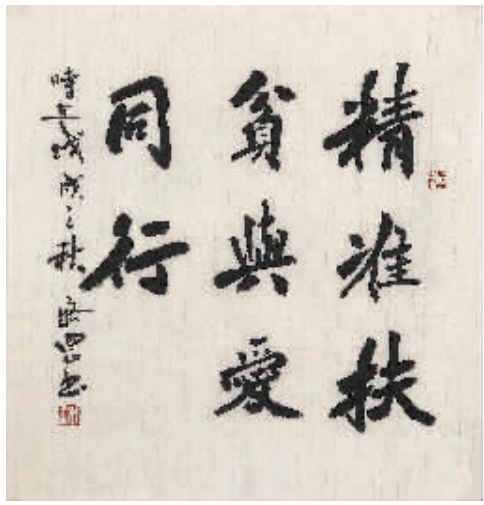 精准扶
貧與愛
同行
時在戊戌之秋